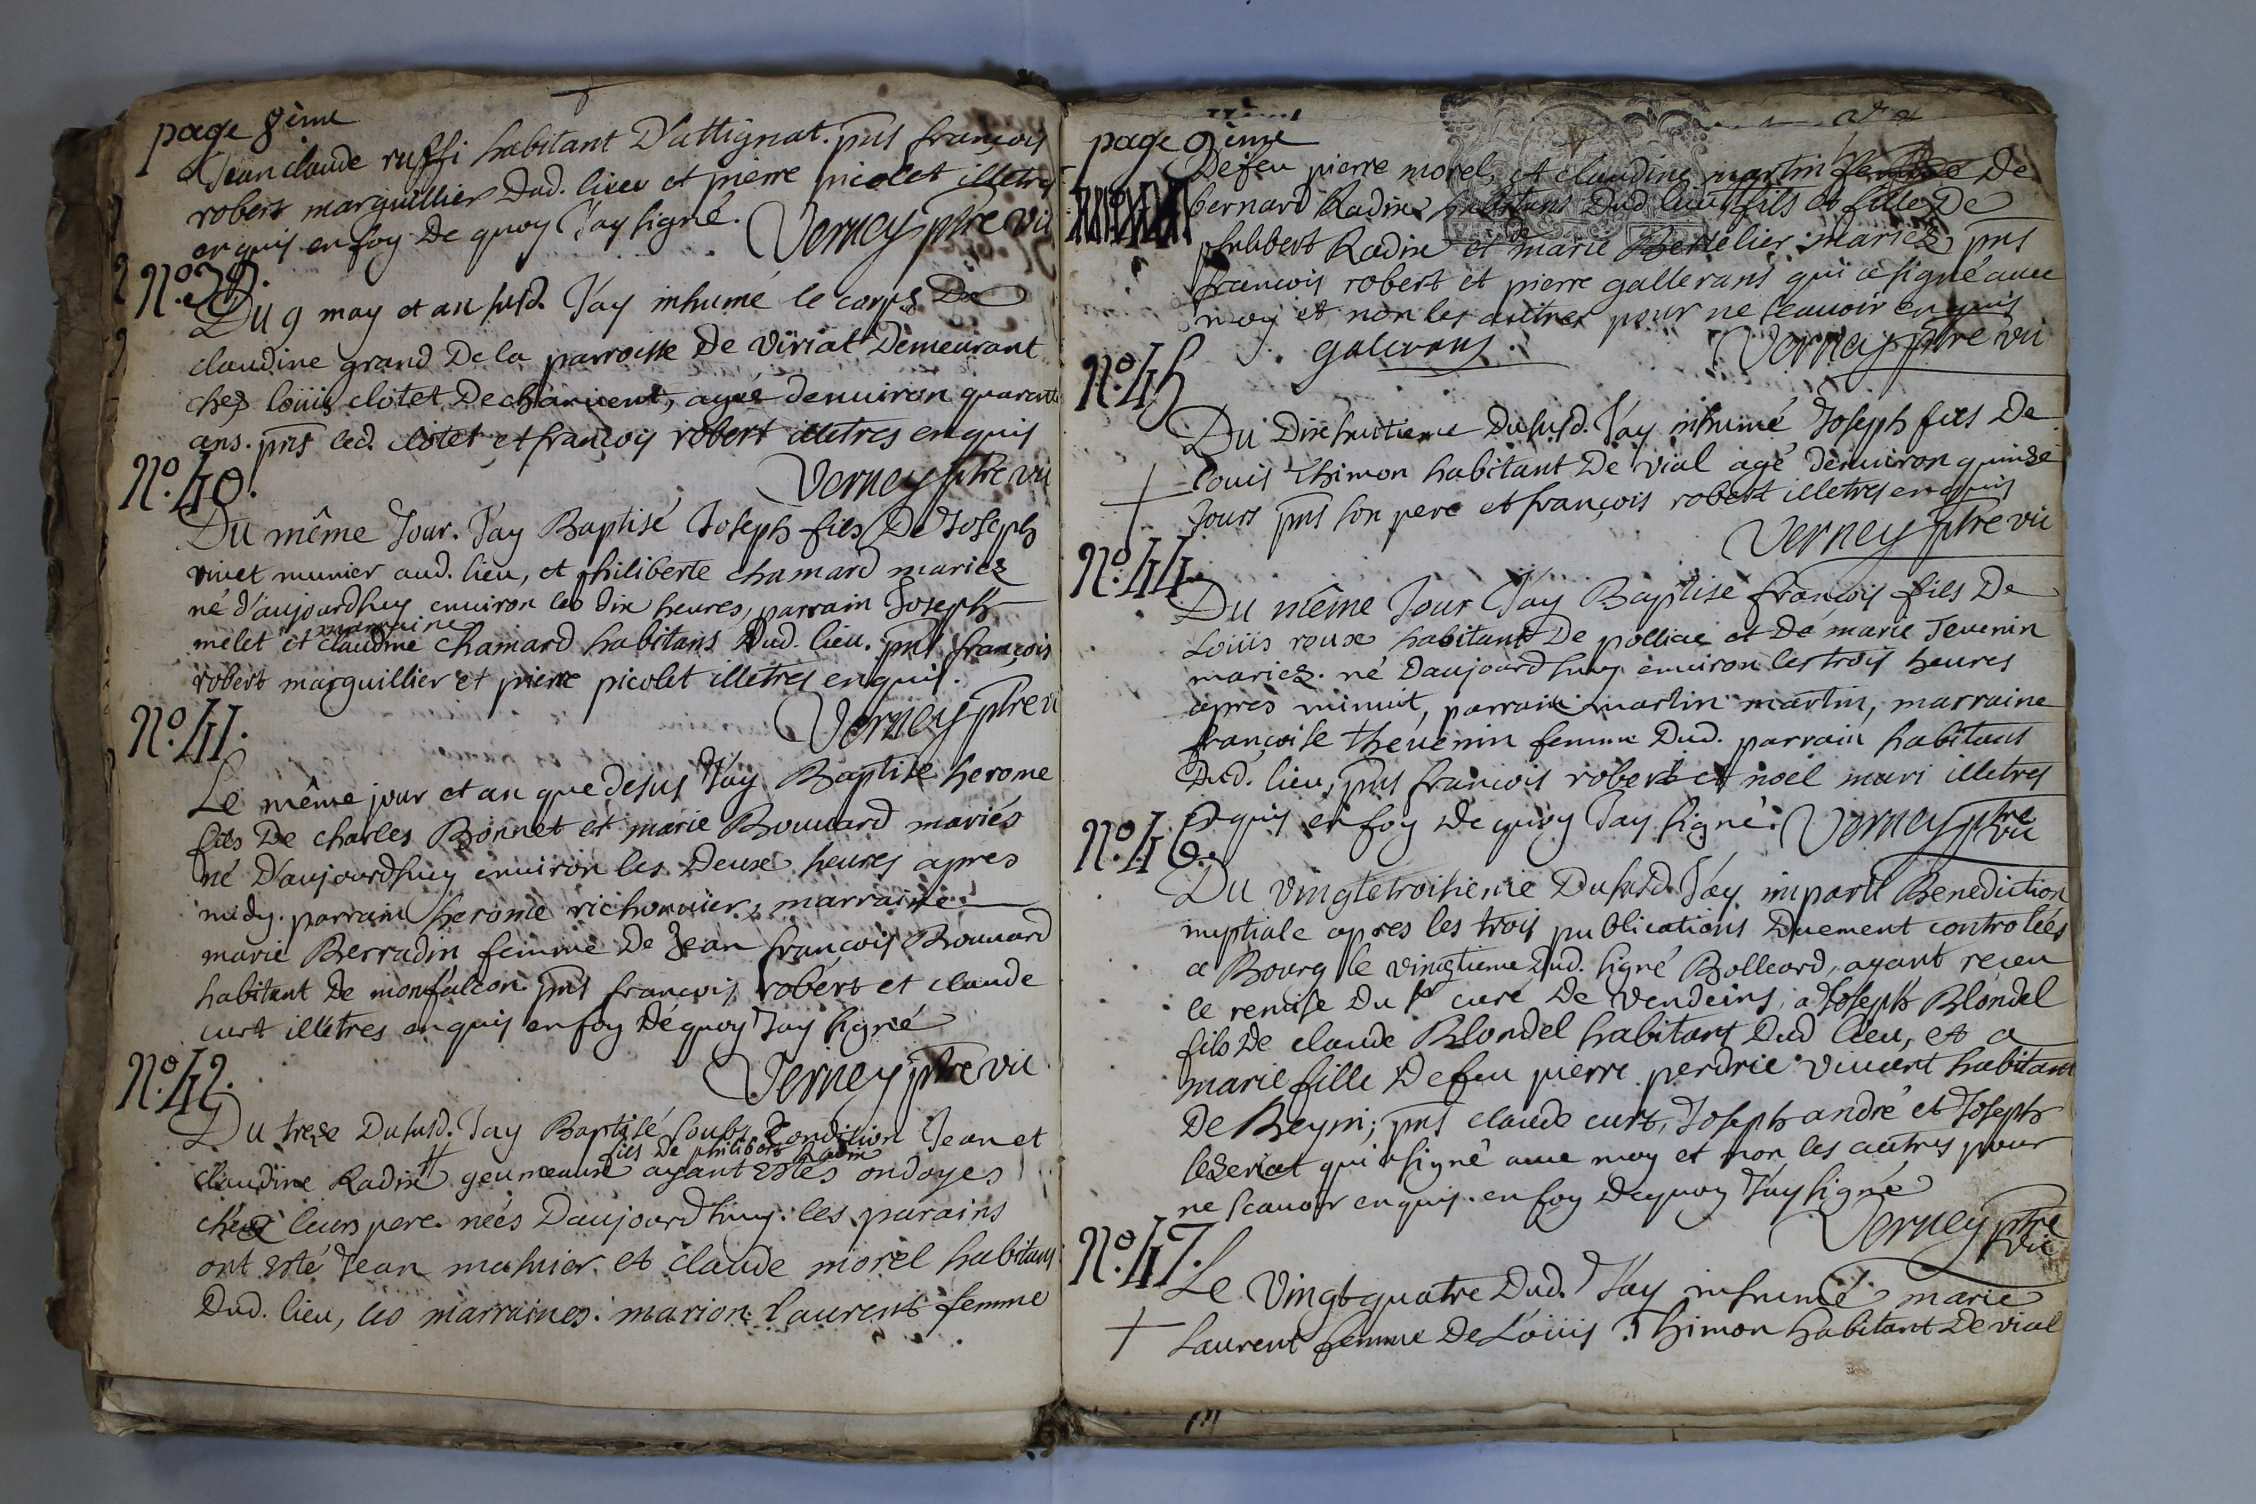 page 8ème
Jean claude ruffi habitant D'attignat. pns françois
robert marguillier Dud. lieu et pierre picolet illetres
enquis en foy De quoy J'ay signé. Verney ptre vic
N.º 39.
Du 9 may et an susd. J'ay inhumé le corps De
claudine grand De la parroisse De viriat Demeurant
chez loüis clotet De charvent, agée denviron quarante
ans. pns led. clotet et françois robert illetres enquis
Verney ptre vic
N.º 40.
Du même Jour. J'ay Baptisé Joseph fils De Joseph
vivet munier aud. lieu, et philiberte chamard mariez
né d'aujourdhuy environ les dix heures, parrain Joseph
marraine
melet et claudine chamard habitans Dud. lieu. pns françois
robert marguillier et pierre picolet illetres enquis.
Verney ptre vi
N.º 41.
Le même jour et an que desus J'ay Baptisé herome
fils De charles Bonnet et marie Bouvard mariés
né D'aujourdhuy environ les Deux heures apres
midy. parrain herome richonnier, marraine
marie Berradin femme De Jean françois Bouvard
habitant De monfalcon. pns françois robert et claude
curt illetres enquis en foy De quoy J'ay signé
Verney ptre vic
N.º 42.
Du treze Dusud. J'ay Baptisé soubs Condition Jean et
fils De philibert Radix
claudine Radix geumeaux ayant estés ondoyés
chez leurs pere. nées Daujourdhuy. les parains
ont esté Jean mahuier et claude morel habitans
Dud. lieu, les marraines. marion laurent femme
page 9ème
De feu pierre morel, et claudine martin De
bernard Radix habitans Dud. lieu fils et fille De
philibert Radix et marie Bertelier mariez pns
françois robert et pierre gallerans qui a signé avec
moy et non les autres pour ne scauoir enquis
galerans. Verney ptre vic
N.º 45
Du Dix huitieme Dusud. J'ay inhumé Joseph fils De
louis Thimon habitant De vial agé denviron quinze
Jours pns son pere et françois robert illetres enquis
Verney ptre vic
N.º 44
Du même Jour J'ay Baptisé françois fils De
Loüis roux habitant De polliac et De marie Tevenin
mariez. né Daujourdhuy environ les trois heures
apres minuit, parrain martin martin, marraine
françoise thevenin femme Dud. parrain habitans
Dud. lieu, pns françois robert et noël mari illetres
enquis en foy De quoy J'ay signé. Verney ptre vic
N.º 46.
Du vingtetroisieme Dusud. J'ay imparti Benediction
nuptiale apres les trois publications Duement controlées
a Bourg le vingtieme Dud. signé Bolleard, ayant receu
le remise Du sr curé De vendeins, a Joseph Blondel
fils De claude Blondel habitant Dud lieu, et a
marie fille De feu pierre perdrie vivent habitant
De Beyni; pns claude curt, Joseph andré et Joseph
lezeriat qui a signé avec moy et non les autres pour
ne scauoir enquis. en foy De quoy J'ay signé
Verney ptre vic
N.º 47.
Le vingt quatre Dud. J'ay inhumé marie
Laurent femme De Loüis Thimon habitant De vial